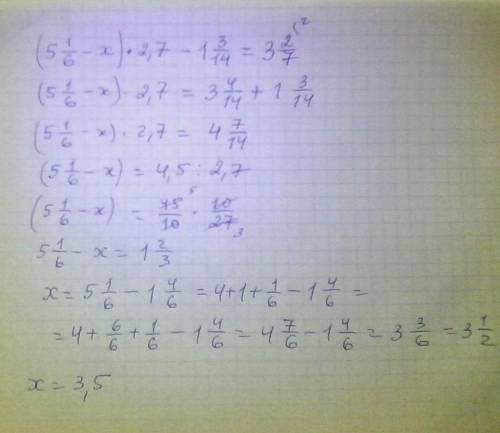 (5 1/6 − x) · 2,7 − 1 3/14 = 3 2/7 ⁽²
(5 1/6 − x) · 2,7 = 3 4/14 + 1 3/14
(5 1/6 − x) · 2,7 = 4 7/14
(5 1/6 − x) = 4,5 : 2,7
(5 1/6 − x) = 45⁵/10 · 10/27₃
5 1/6 − x = 1 2/3
x = 5 1/6 − 1 4/6 = 4+1+ 1/6 − 1 4/6 =
= 4 + 6/6 + 1/6 − 1 4/6 = 4 7/6 − 1 4/6 = 3 3/6 = 3 1/2
x = 3,5